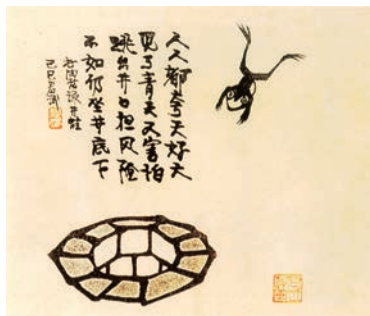 人人都夸天好大
见了青天又害怕
跳出井口担风险
不如仍坐井底下
井蛙
己巳